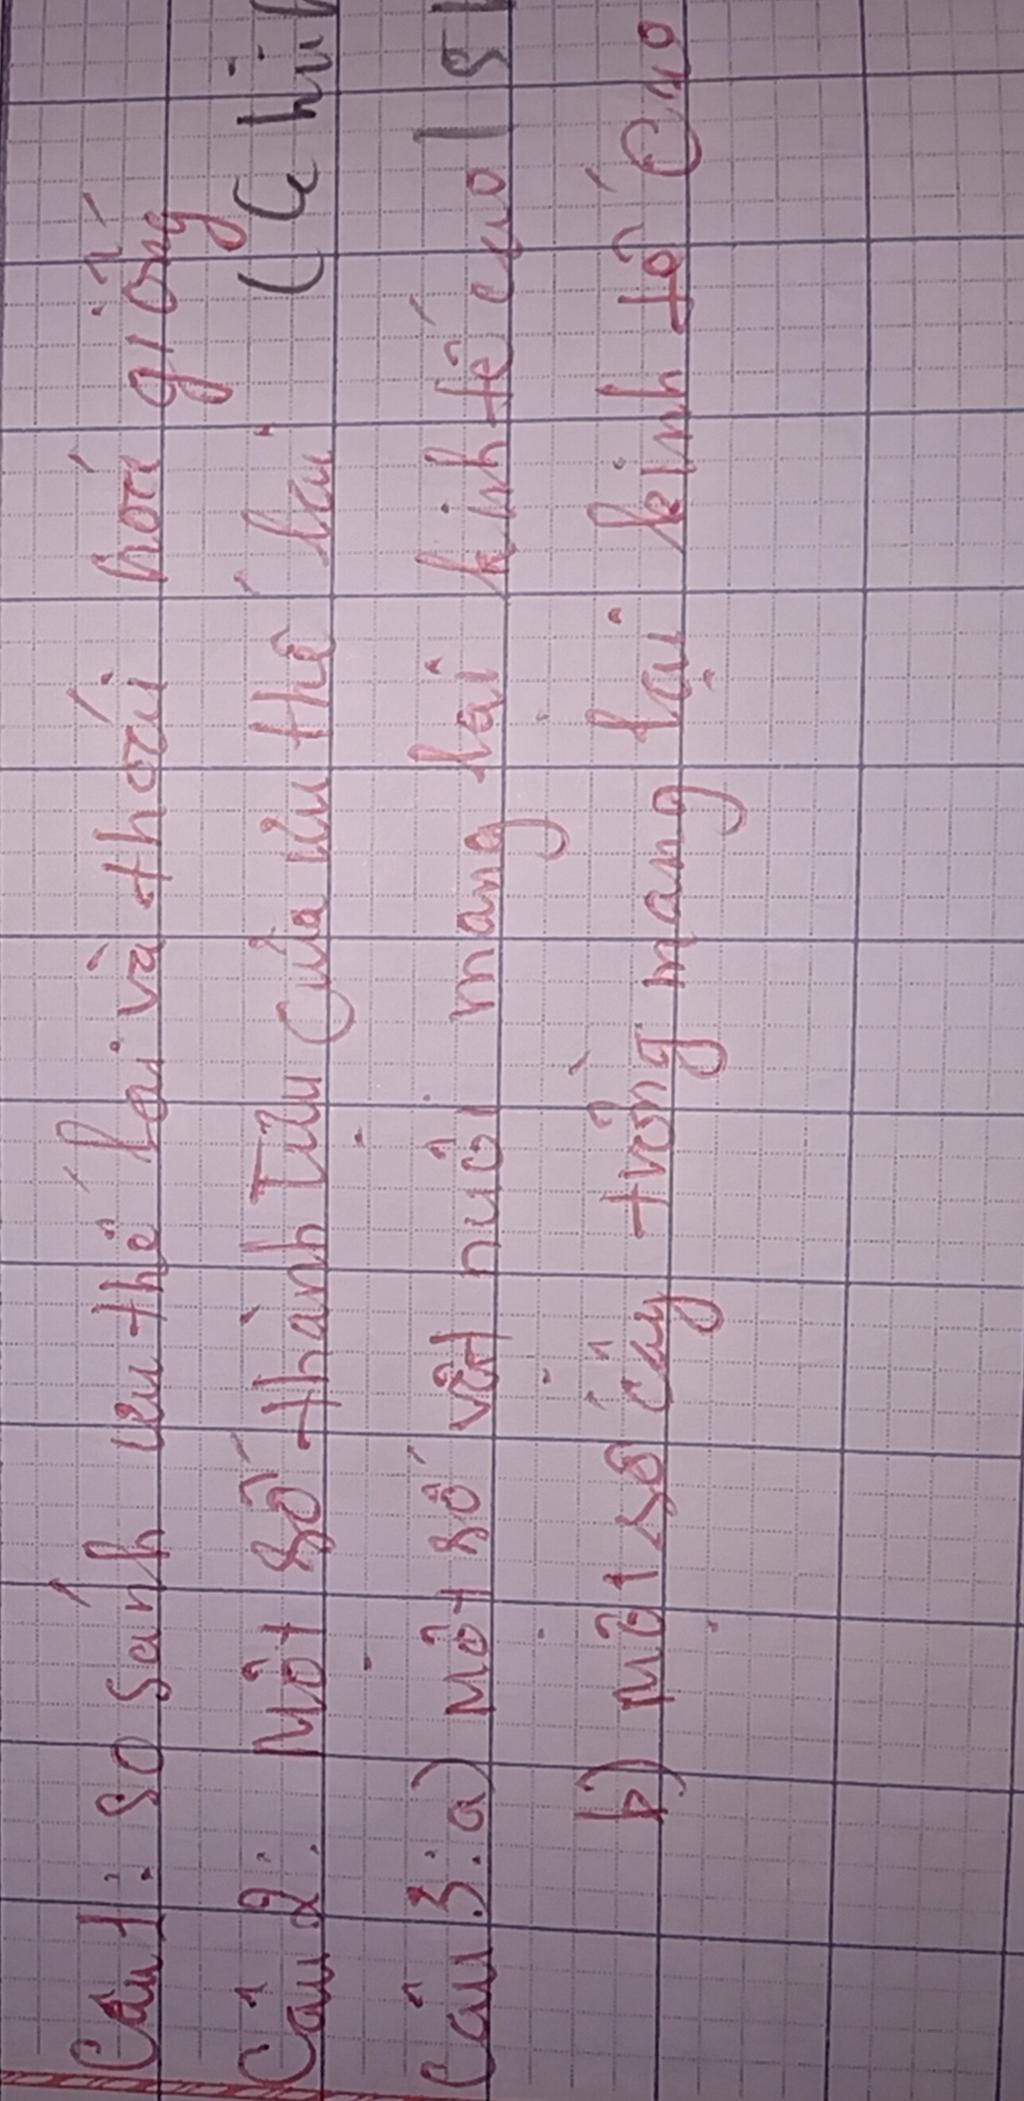 Câu 1: So sánh ưu thế lai và thoái hoá giống
Câu 2: Một số thành Tựu Của ưu thế lai (
Câu 3: a) Một số vật nuôi mang lại kinh tế cao
b) Một số cây trồng mang lại kinh tế Cao